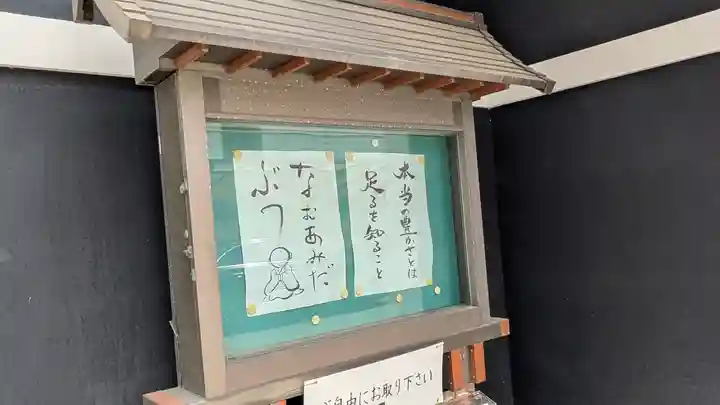 本当の豊かさとは
足るを知ること
なむあみだ
ぶつ
ご自由にお取り下さい